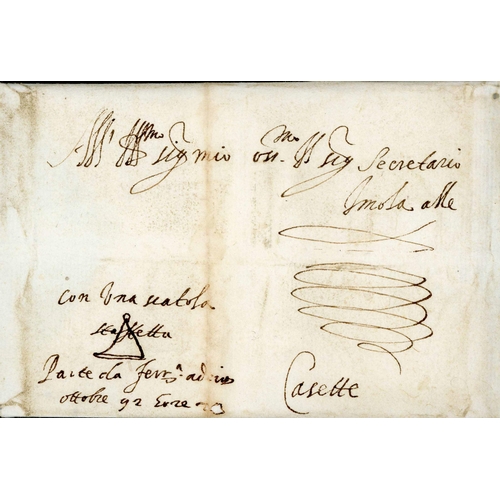 All' Ill.mo sig mio oss.mo Il sig Secretario
Imola alle
Casette
con Una scatola
staffetta
Parte da Ferr.a adi
ottobre 92